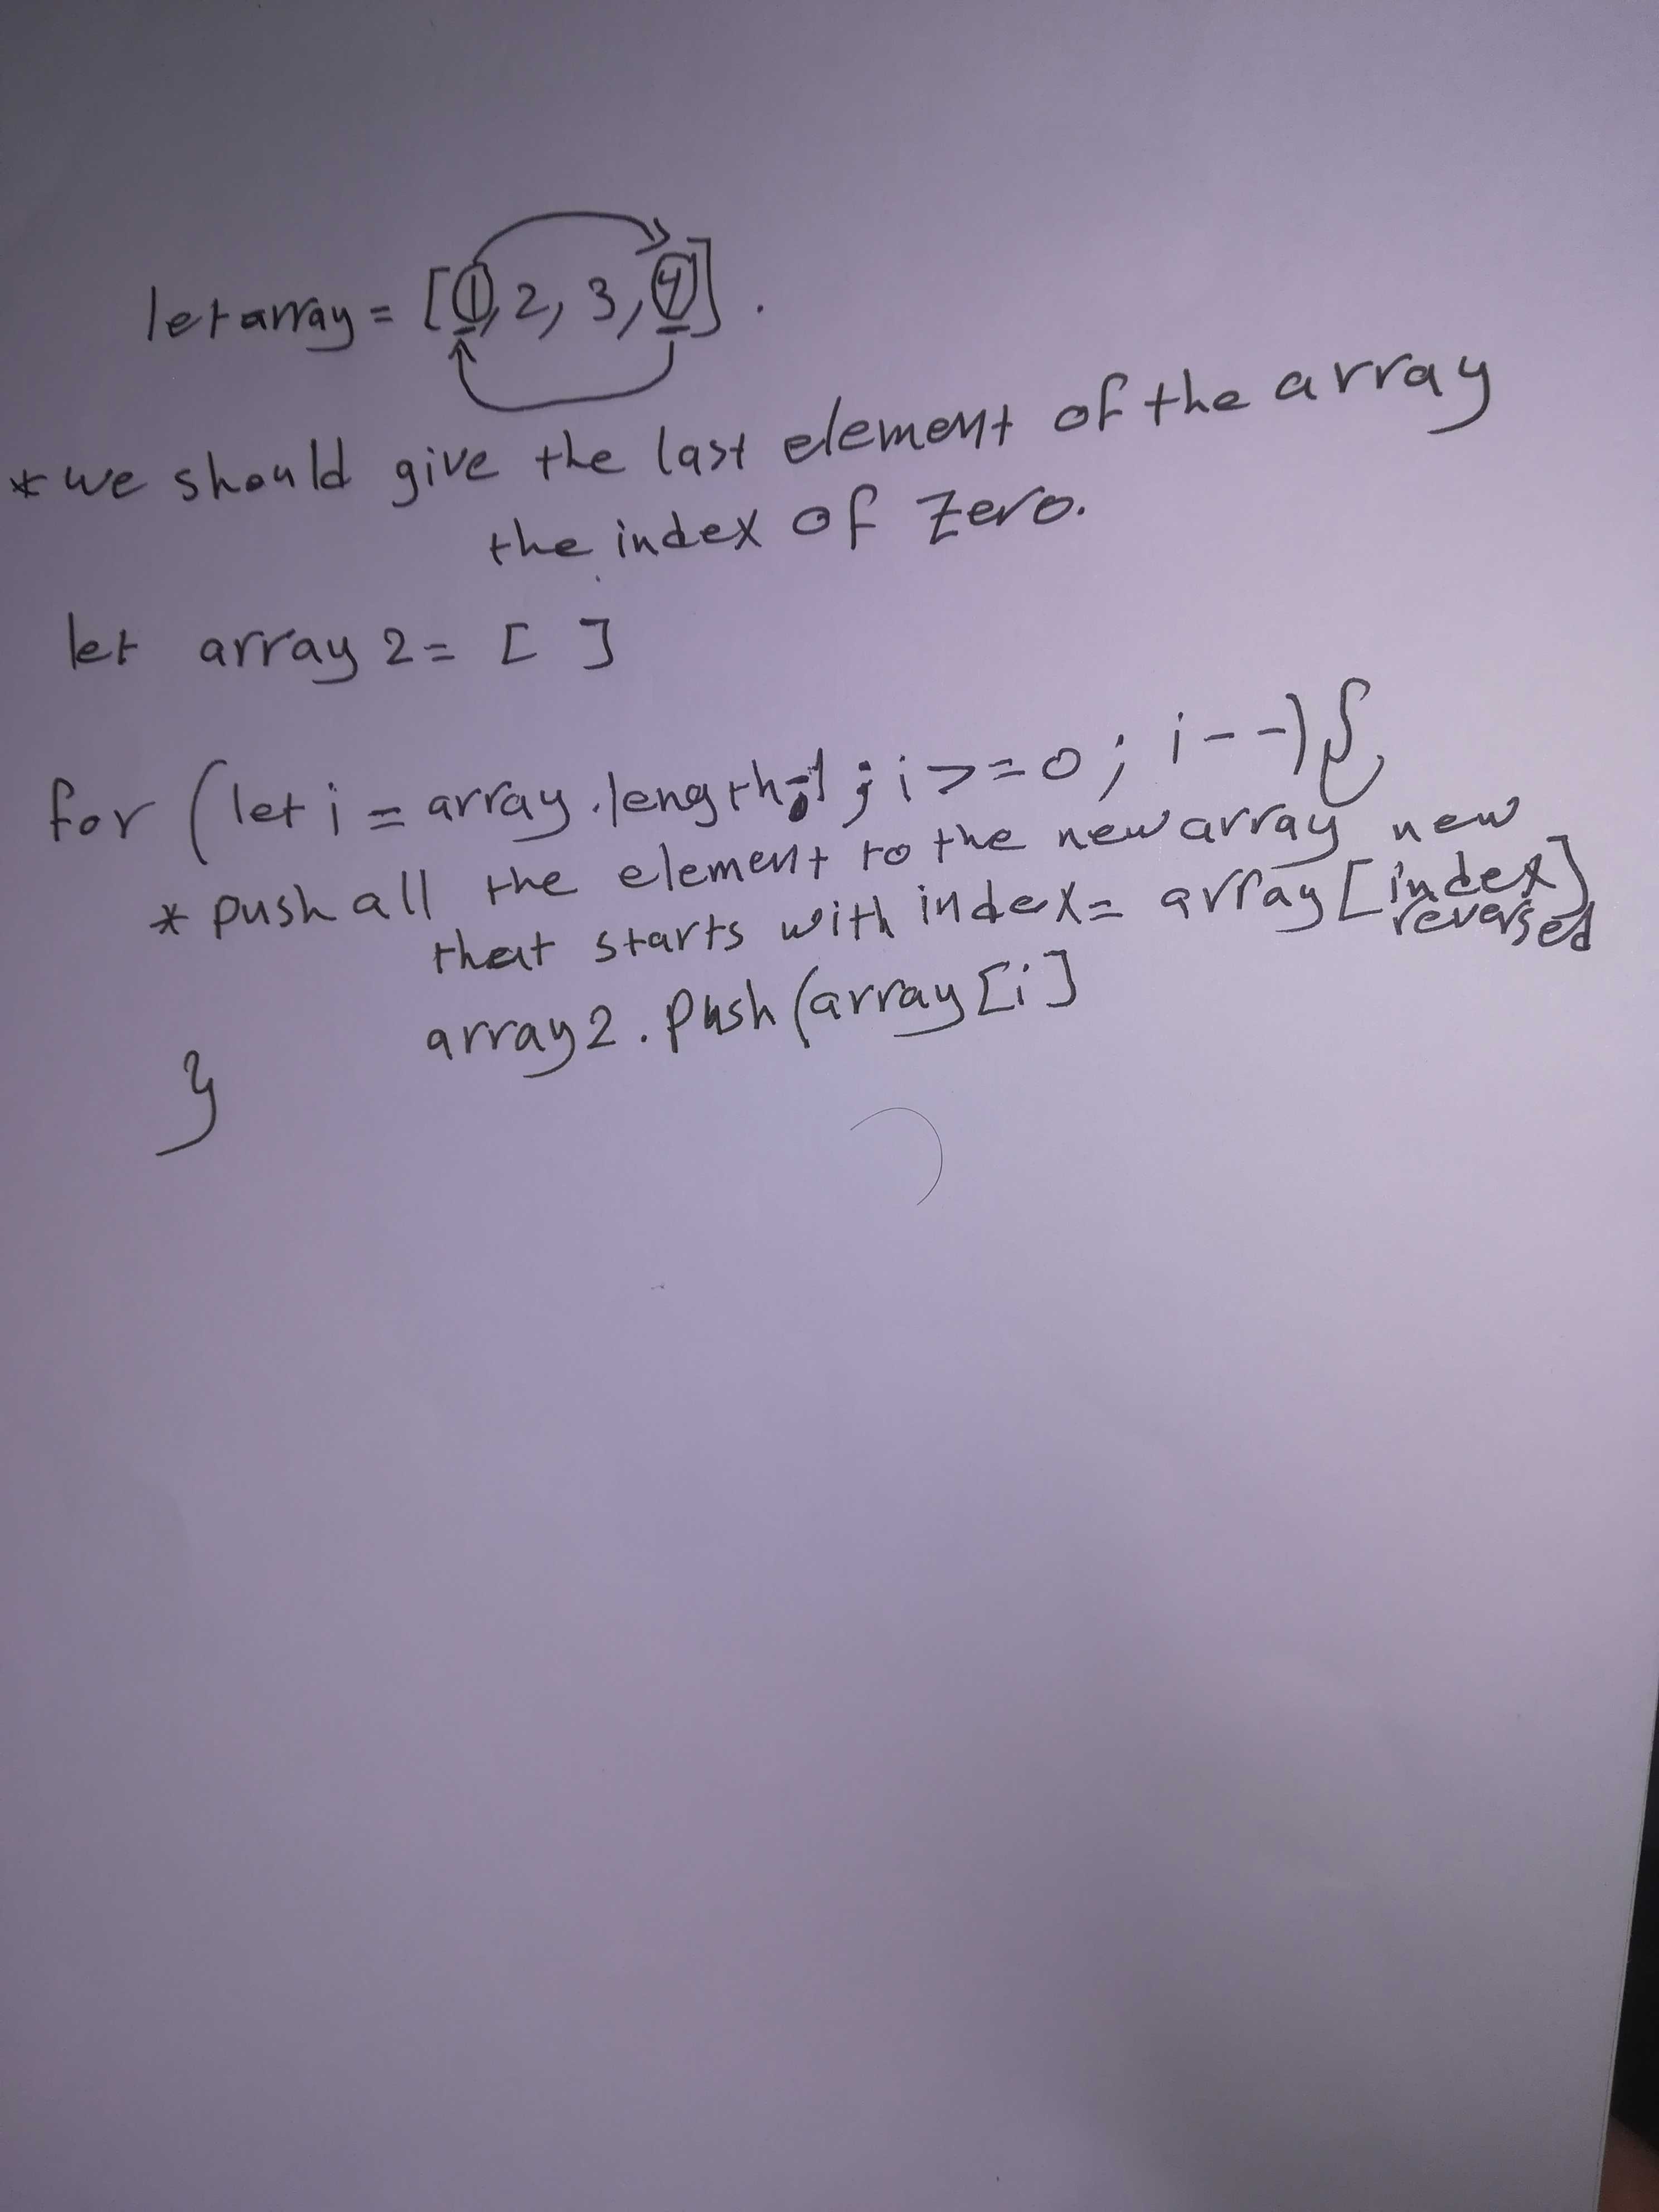 let array = [1, 2, 3, 4].
* we should give the last element of the array
the index of Zero.
let array 2 = [ ]
for (let i = array.length-1 ; i >= 0 ; i--) {
* push all the element to the new array new
that starts with index = array [index]
reversed
array2.push(array[i]
}